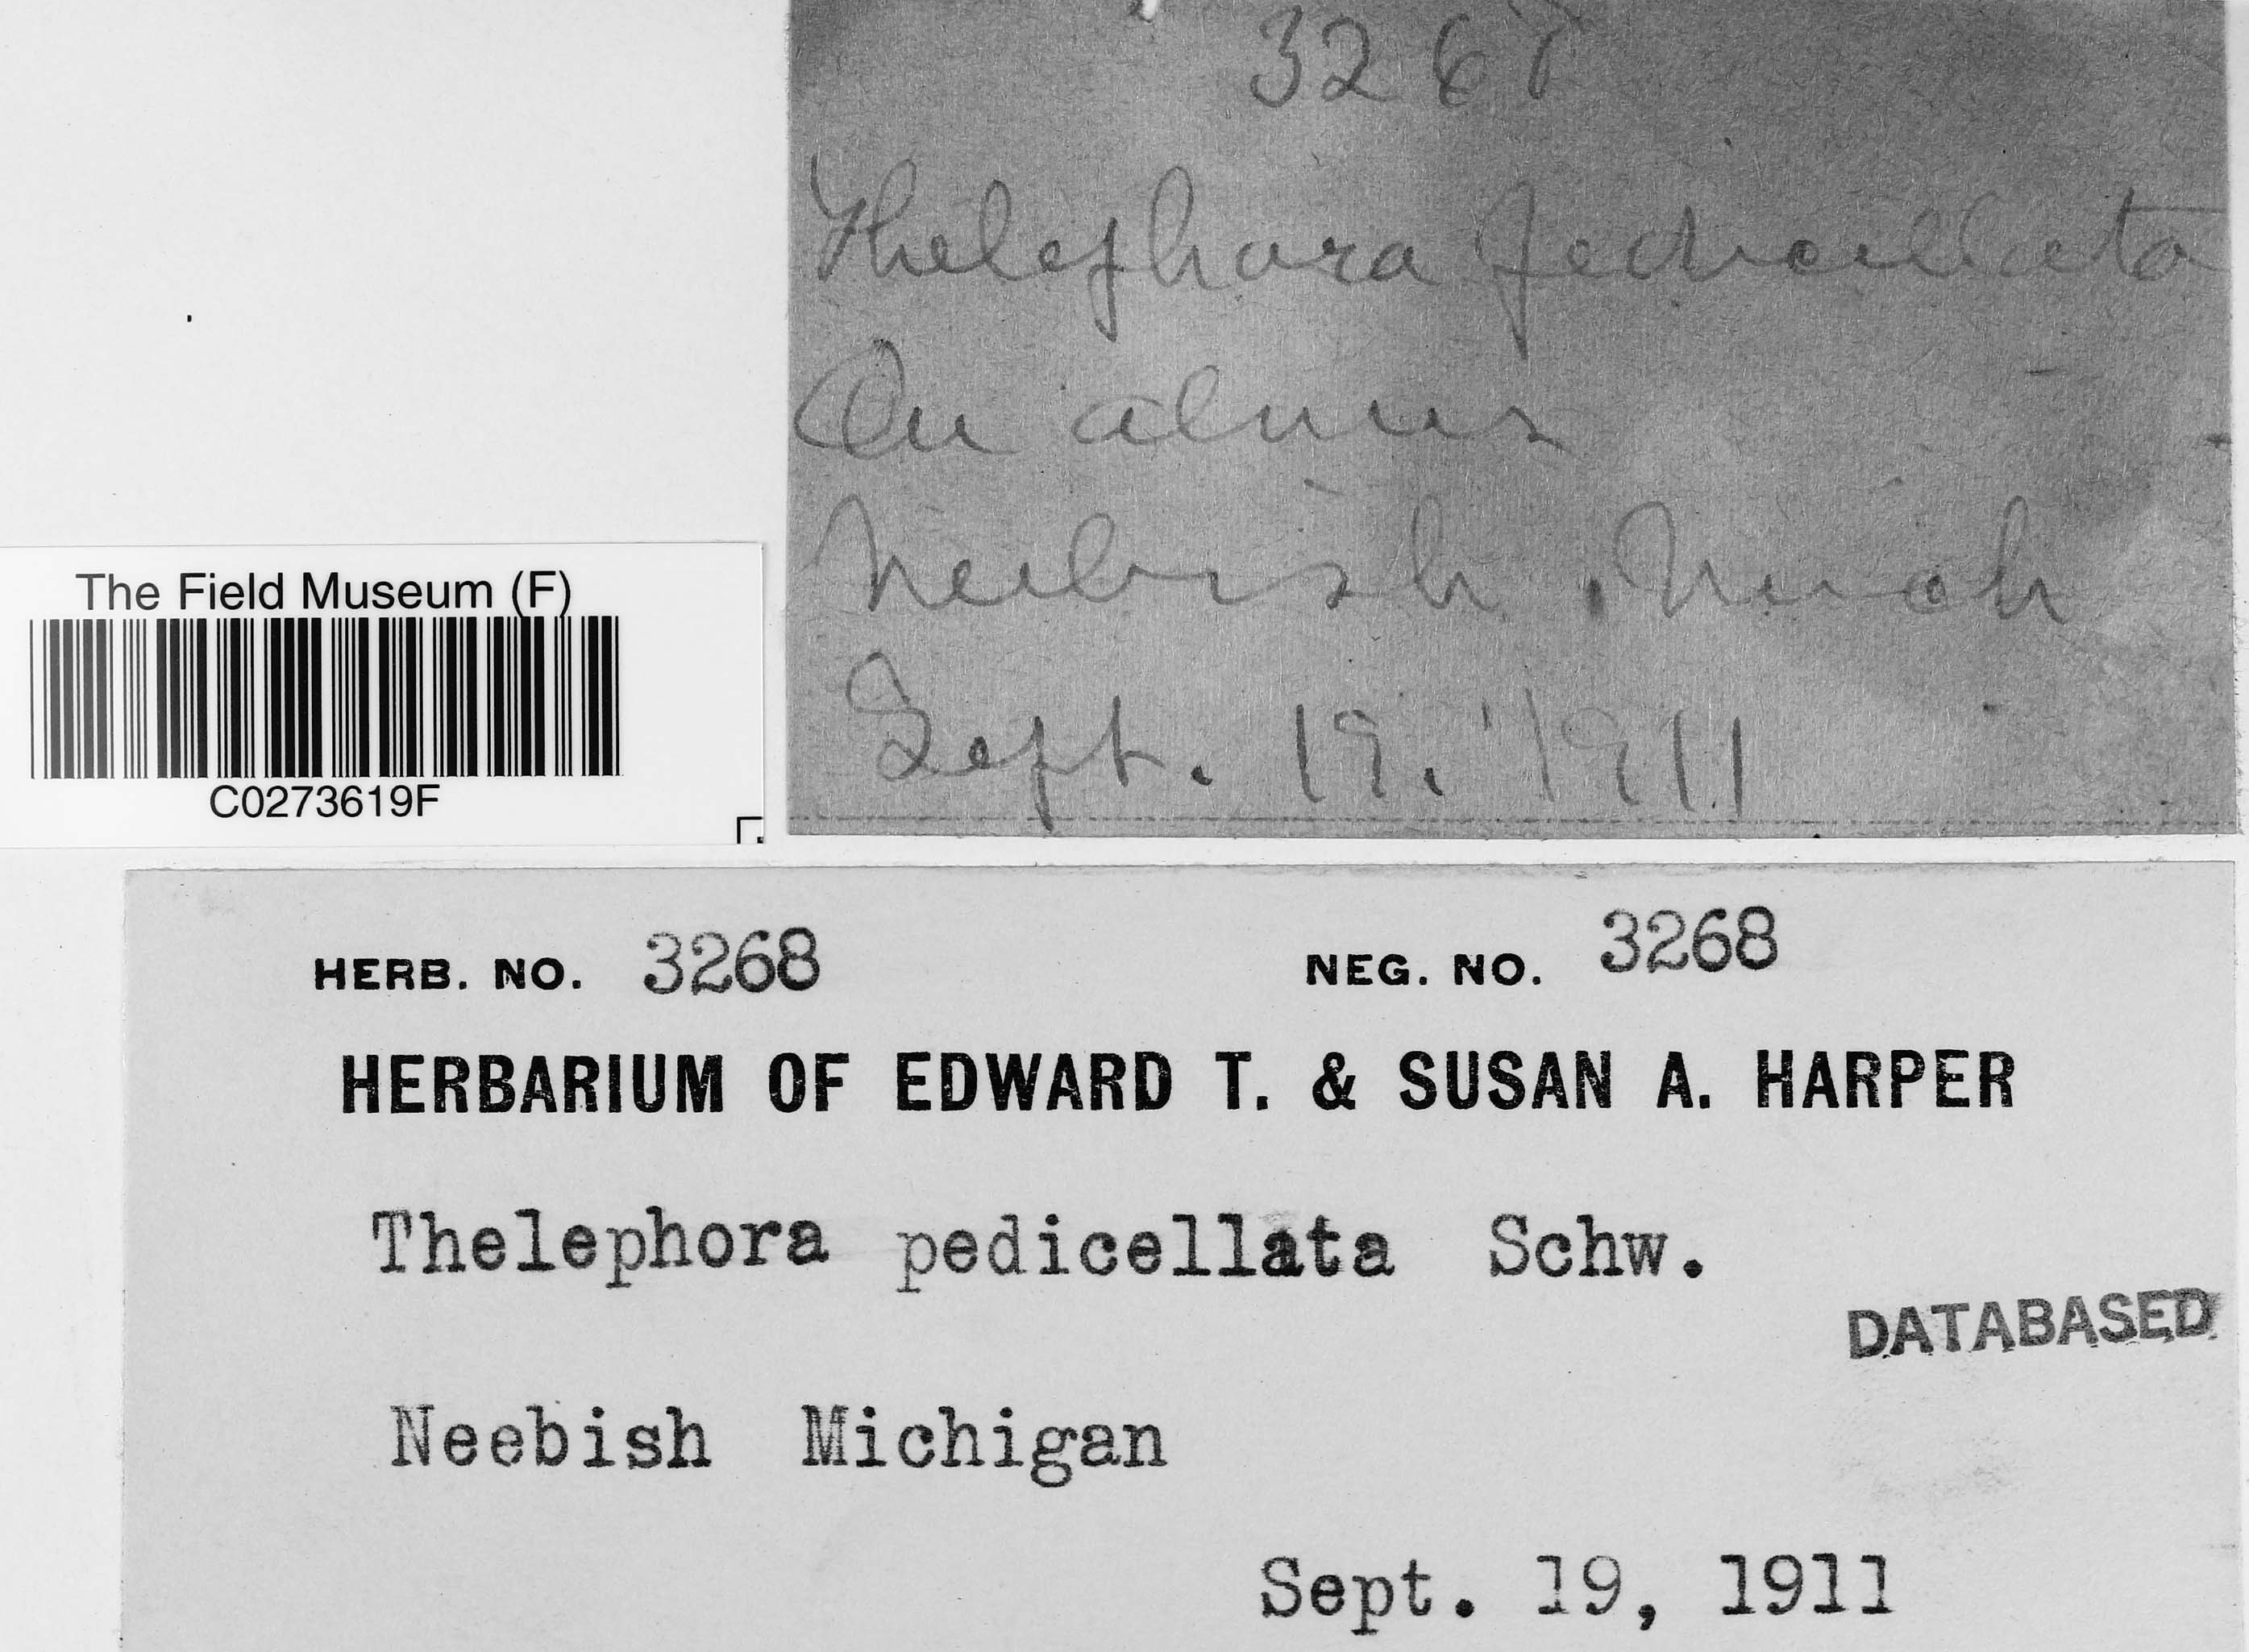 3268
Thelephora pedicellata
On alnus
Neebish, Mich
Sept. 19. 1911
The Field Museum (F)
C0273619F
HERB. NO. 3268 NEG. NO. 3268
HERBARIUM OF EDWARD T. & SUSAN A. HARPER
Thelephora pedicellata Schw.
DATABASED
Neebish Michigan
Sept. 19, 1911